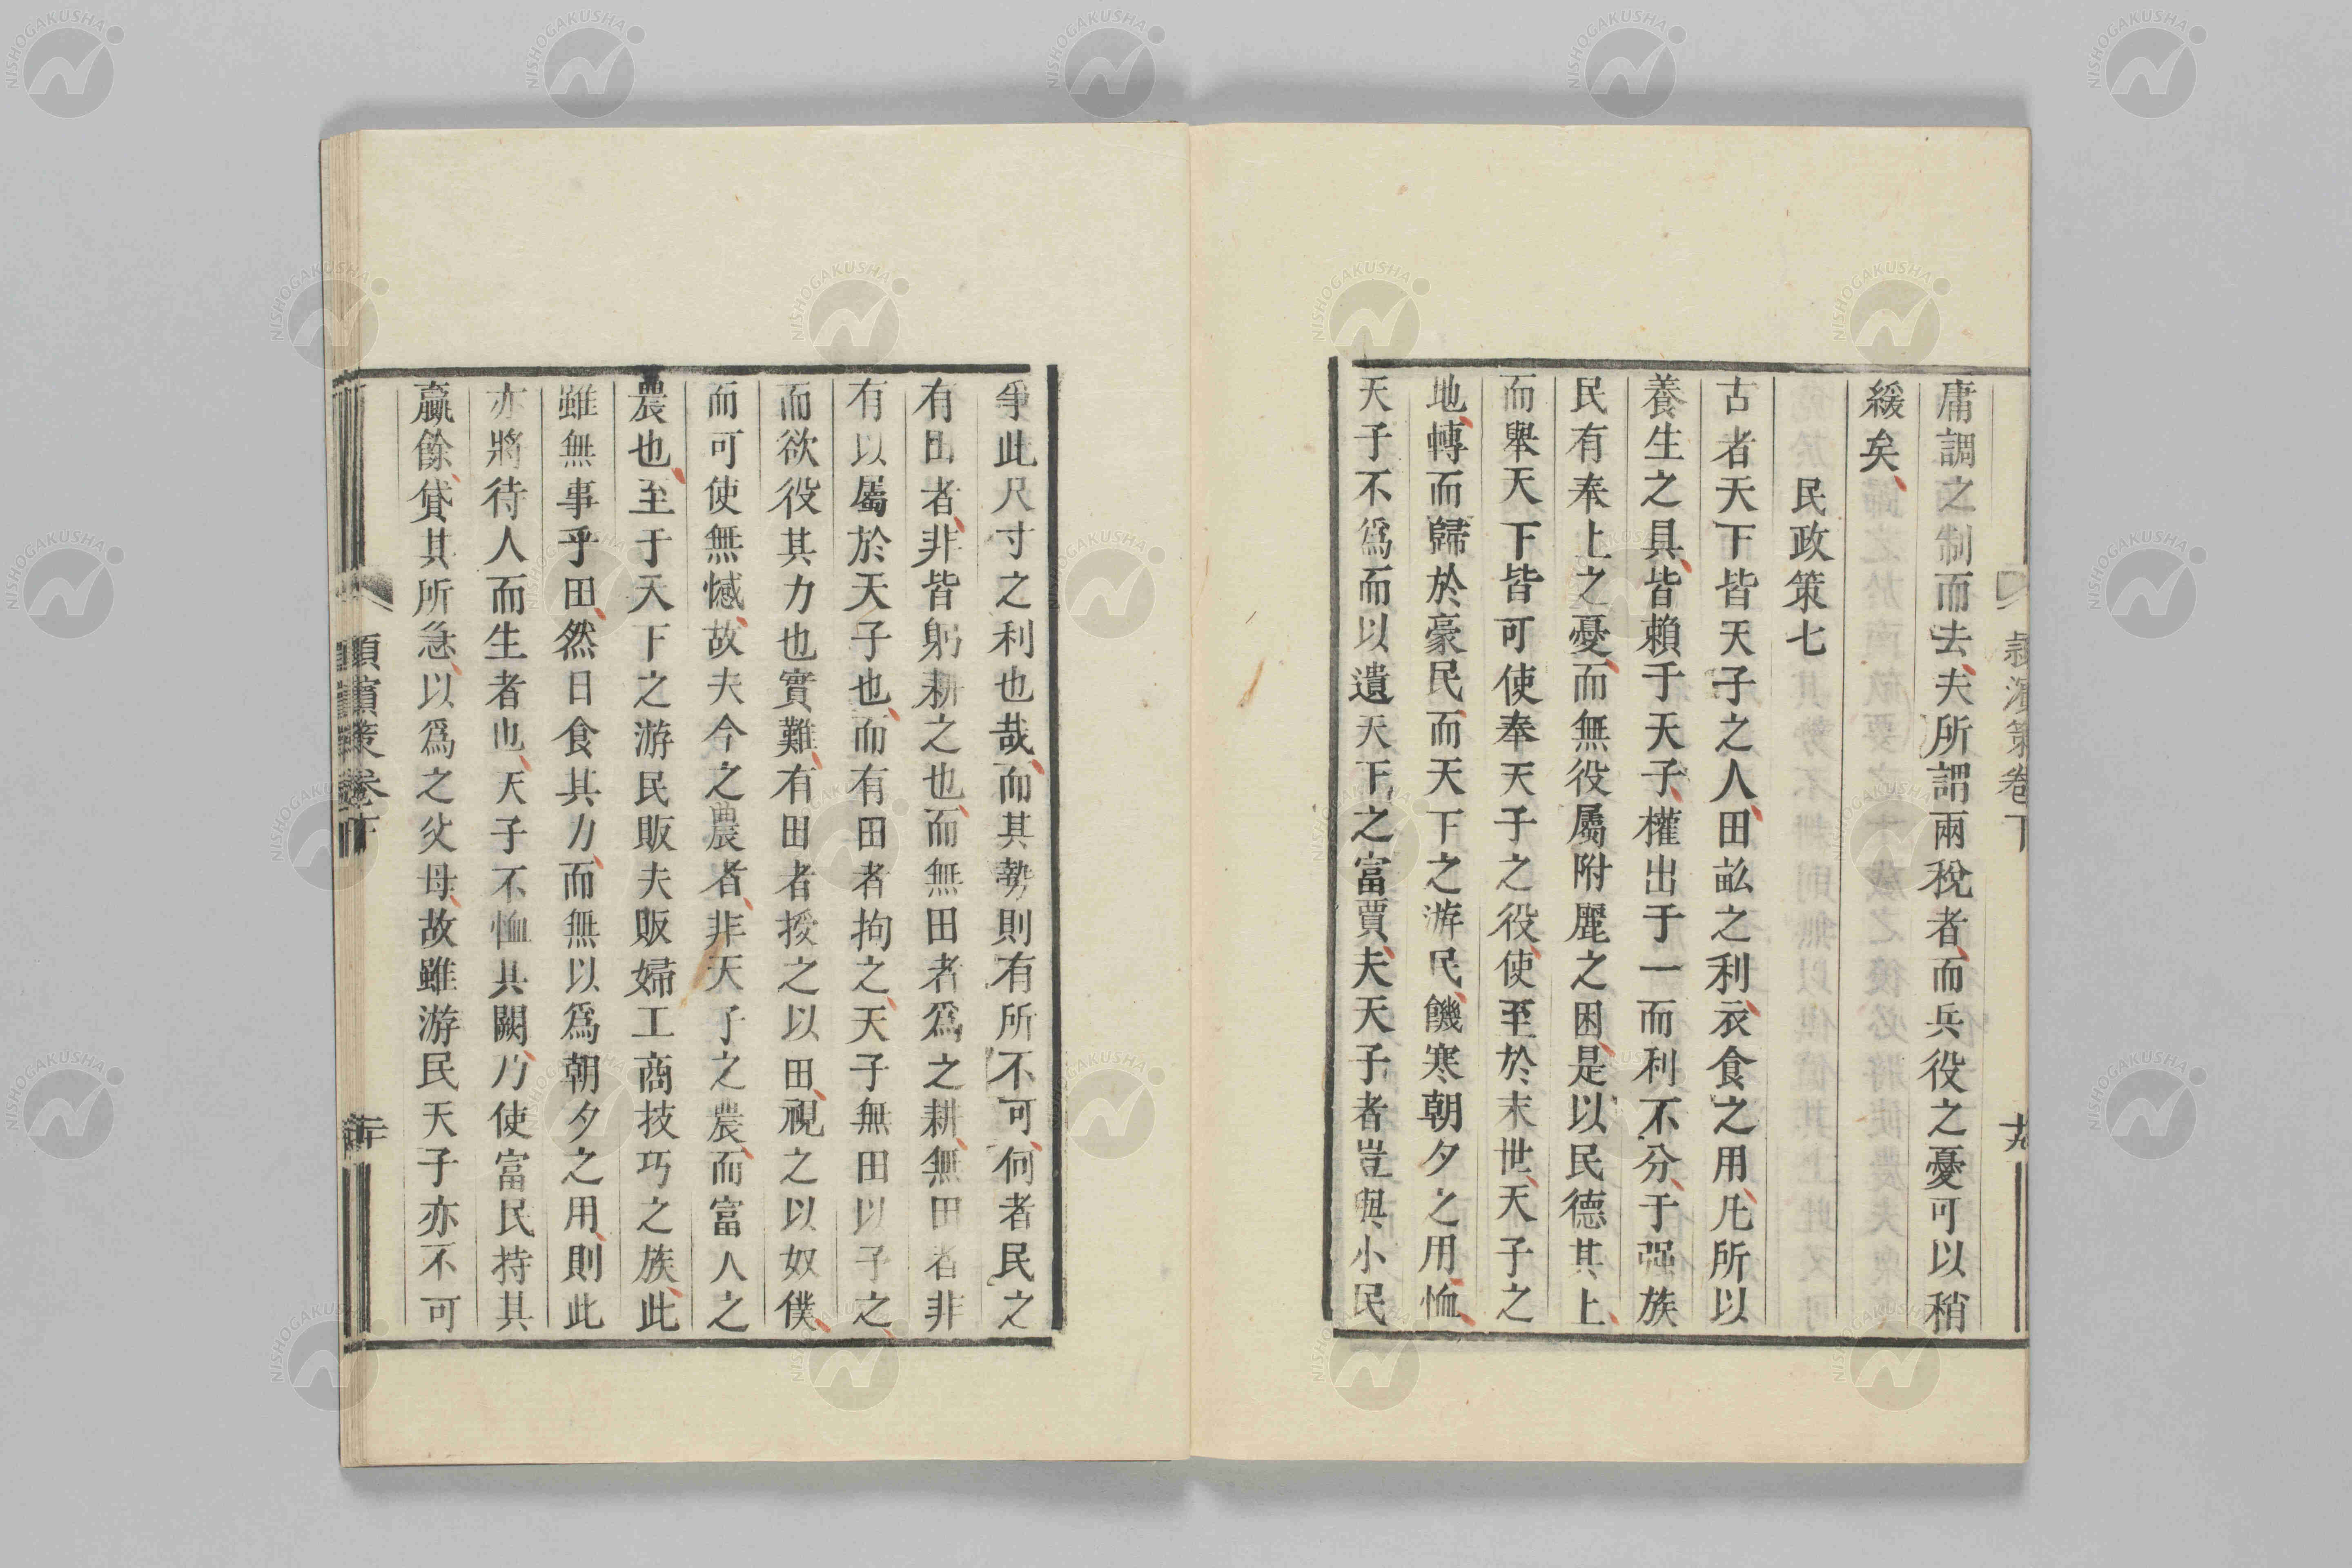 庸調之制而去夫所謂兩稅者而兵役之憂可以稍
緩矣
民政策七
古者天下皆天子之人田畝之利衣食之用凡所以
養生之具皆賴于天子權出于一而利不分于强族
民有奉上之憂而無役屬附麗之困是以民德其上
而舉天下皆可使奉天子之役使至於末世天子之
地轉而歸於豪民而天下之游民饑寒朝夕之用恤
天子不爲而以遺天下之富賈夫天子者豈與小民
爭此尺寸之利也哉而其勢則有所不可何者民之
有田者非皆躬耕之也而無田者爲之耕無田者非
有以屬於天子也而有田者拘之天子無田以予之
而欲役其力也實難有田者授之以田視之以奴僕
而可使無憾故夫今之農者非天子之農而富人之
農也至于天下之游民販夫販婦工商技巧之族此
雖無事乎田然日食其力而無以爲朝夕之用則此
亦將待人而生者也天子不恤其闕乃使富民持其
贏餘貸其所急以爲之父母故雖游民天子亦不可
潁濱策卷下
十九
NISHOGAKUSHA